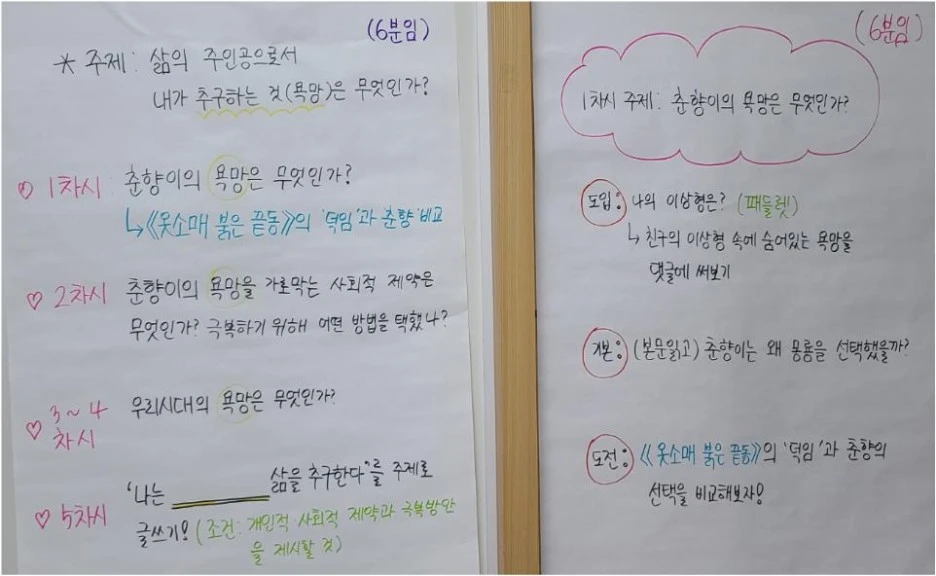 (6분임)
* 주제: 삶의 주인공으로서
내가 추구하는 것(욕망)은 무엇인가?
♡ 1차시 춘향이의 욕망은 무엇인가?
↳《옷소매 붉은 끝동》의 '덕임'과 춘향 비교
♡ 2차시 춘향이의 욕망을 가로막는 사회적 제약은
무엇인가? 극복하기 위해 어떤 방법을 택했나?
♡ 3~4차시 우리시대의 욕망은 무엇인가?
♡ 5차시 '나는 ________ 삶을 추구한다'를 주제로
글쓰기! (조건: 개인적 사회적 제약과 극복방안
을 제시할 것)
(6분임)
1차시 주제: 춘향이의 욕망은 무엇인가?
도입: 나의 이상형은? (패들렛)
↳ 친구의 이상형 속에 숨어있는 욕망을
댓글에 써보기
기본: (본문읽고) 춘향이는 왜 몽룡을 선택했을까?
도전: 《옷소매 붉은 끝동》의 '덕임'과 춘향의
선택을 비교해보자!